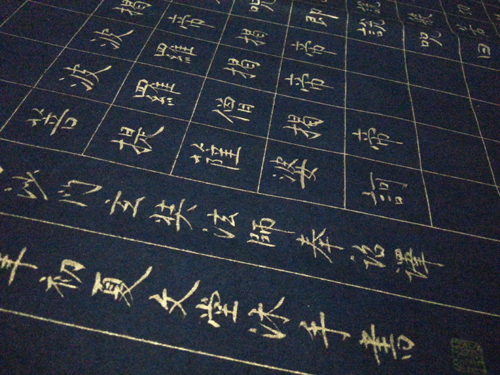 咒即說咒曰
揭帝揭帝
波羅揭帝
波羅僧揭帝
菩提薩婆訶
沙门玄奘法師奉詔譯
年初夏文堂沐手書